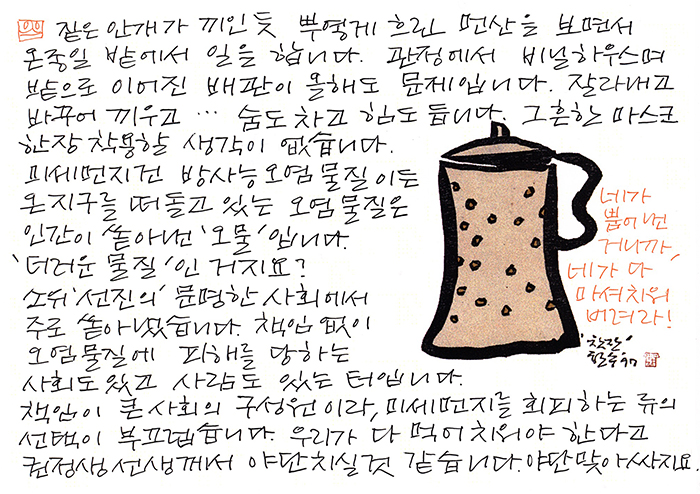 짙은 안개가 끼인 듯 뿌옇게 흐린 먼산을 보면서
온종일 밭에서 일을 합니다. 관정에서 비닐하우스며
밭으로 이어진 배관이 올해도 문제입니다. 잘라내고
바꾸어 끼우고 … 숨도 차고 힘도 듭니다. 그 흔한 마스크
한장 착용할 생각이 없습니다.
미세먼지건 방사능오염물질이든
온지구를 떠돌고 있는 오염물질은
인간이 쏟아낸 '오물'입니다.
'더러운 물질'인 거지요?
소위 '선진의' 문명한 사회에서
주로 쏟아냈습니다. 책임 없이
오염물질에 피해를 당하는
사회도 있고 사람도 있는 터입니다.
책임이 큰 사회의 구성원이라, 미세먼지를 회피하는 류의
선택이 부끄럽습니다. 우리가 다 먹어치워야 한다고
권정생선생께서 야단치실것 같습니다. 야단맞아 싸지요.
네가
뿜어낸
거니까,
네가 다
마셔치워
버려라!
'찻잔'
철수 '97